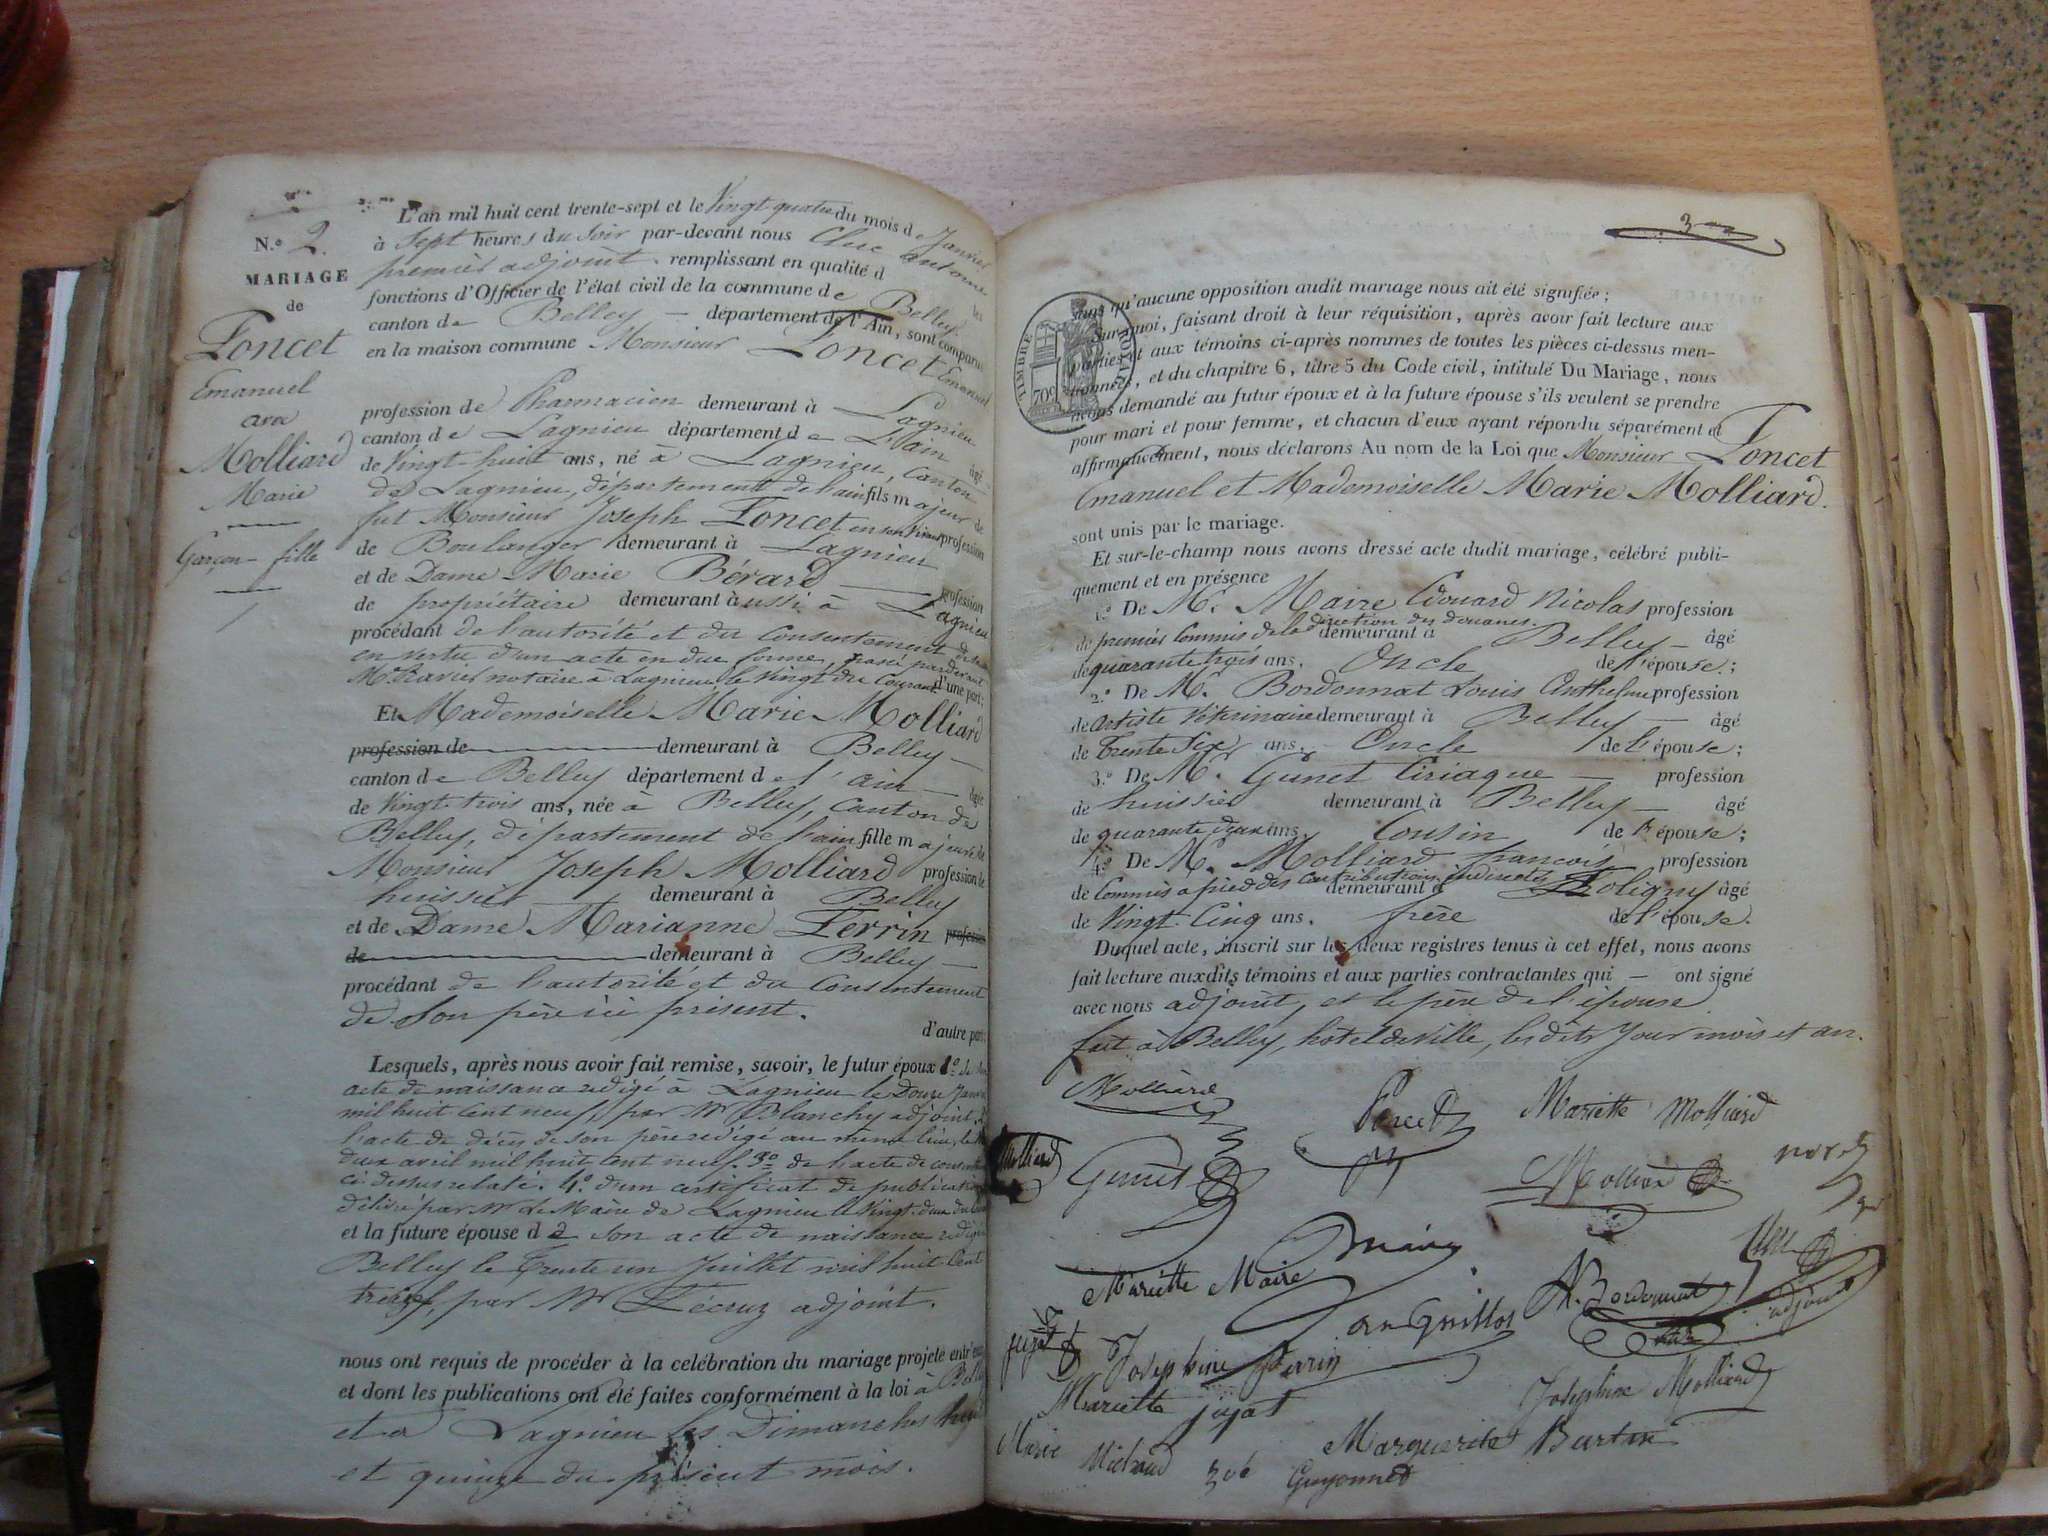 N.o 2.
MARIAGE
de
Poncet
Emanuel
avec
Molliard
Marie
Garçon - fille
L'an mil huit cent trente-sept et le Vingt quatre du mois de Janvier
à Sept heures du Soir par-devant nous Clerc antoine
premier adjoint remplissant en qualité d les
fonctions d'Officier de l'état civil de la commune de Belley
canton de Belley - département de l'Ain, sont comparus
en la maison commune Monsieur Poncet Emanuel
profession de Pharmacien demeurant à Lagnieu
canton de Lagnieu département de L'ain âgé
de Vingt-huit ans, né à Lagnieu, Canton
de Lagnieu, département de l'ain fils majeur de
fut Monsieur Joseph Poncet en son vivant profession
de Boulanger demeurant à Lagnieu
et de Dame Marie Bérard profession
de propriétaire demeurant à aussi à Lagnieu
procédant de l'autorité et du Consentement de
en vertu d'un acte en due forme, passé pardevant
Me Ravier notaire à Lagnieu le Vingt du Courant d'une part;
Et Mademoiselle Marie Molliard
profession de demeurant à Belley
canton de Belley département de l'ain âgée
de Vingt-trois ans, née à Belley, Canton de
Belley, département de l'ain fille majeure de
Monsieur Joseph Molliard profession de
huissier demeurant à Belley
et de Dame Marianne Perrin profession
de demeurant à Belley
procédant de l'autorité et du Consentement
de Son père ici présent.
d'autre part;
Lesquels, après nous avoir fait remise, savoir, le futur époux 1.o de son
acte de naissance redigé à Lagnieu le Douze Janvier
mil huit Cent neuf, par Mr Blanchy adjoint.
l'acte de décès de son père redigé au même lieu, le
deux avril mil huit Cent neuf. 3o de l'acte de consentement
ci-dessus relaté. 4o. d'un certificat de publication
délivré par Mr le Maire de Lagnieu le Vingt-deux du
et la future épouse d e son acte de naissance redigé
Belley le Trente un Juillet mil huit Cent
treize, par Mr Pécruz adjoint.
nous ont requis de procéder à la celébration du mariage projeté entr'eux
et dont les publications ont été faites conformément à la loi à Belley
et à Lagnieu les Dimanches huit
et quinze du présent mois.
3
TIMBRE ROYAL
70c
sans qu'aucune opposition audit mariage nous ait été signifiée;
Sur quoi, faisant droit à leur réquisition, après avoir fait lecture aux
parties et aux témoins ci-après nommes de toutes les pièces ci-dessus men-
tionnées, et du chapitre 6, titre 5 du Code civil, intitulé Du Mariage, nous
avons demandé au futur époux et à la future épouse s'ils veulent se prendre
pour mari et pour femme, et chacun d'eux ayant répondu séparément et
affirmativement, nous déclarons Au nom de la Loi que Monsieur Poncet
Emanuel et Mademoiselle Marie Molliard.
sont unis par le mariage.
Et sur-le-champ nous avons dressé acte dudit mariage, célébré publi-
quement et en présence
1.o De Mr. Maire Edouard Nicolas profession
de premier Commis de la direction des douanes. demeurant à Belley - âgé
de quarante trois ans, Oncle de l'épouse;
2.o De Mr. Bordonnat Louis Anthelme profession
de Artiste Vétérinaire demeurant à Belley - âgé
de Trente Six ans, Oncle de l'épouse;
3.o De Mr. Gunet Ciriaque - profession
de huissier demeurant à Belley - âgé
de quarante deux ans, Cousin de l'épouse;
4.o De Mr. Molliard françois profession
de Commis à pied des Contributions indirectes demeurant à Poligny âgé
de Vingt-Cinq ans, frère de l'épouse.
Duquel acte, inscrit sur les deux registres tenus à cet effet, nous avons
fait lecture auxdits témoins et aux parties contractantes qui - ont signé
avec nous adjoint, et le père de l'épouse
fait à Belley, hôtel de Ville, les dits Jour mois et an.
Molliard
Poncet
Mariette Molliard
Molliard
Gunet
Molliard
Mariette Maire
Maire
Clerc
adjoint
A. Bordonnat
jujat
Josephine Perrin
Josephine Molliard
Mariette jujat
Marie Michaud
Marguerite Burtin
Guyonnet